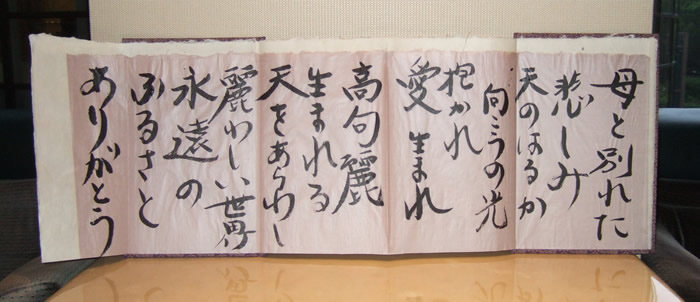 母と別れた
悲しみ
天のはるか
向こうの光
抱かれ
愛 生まれ
高句麗
生まれる
天をあらわし
麗わしい世界
永遠の
ふるさと
ありがとう